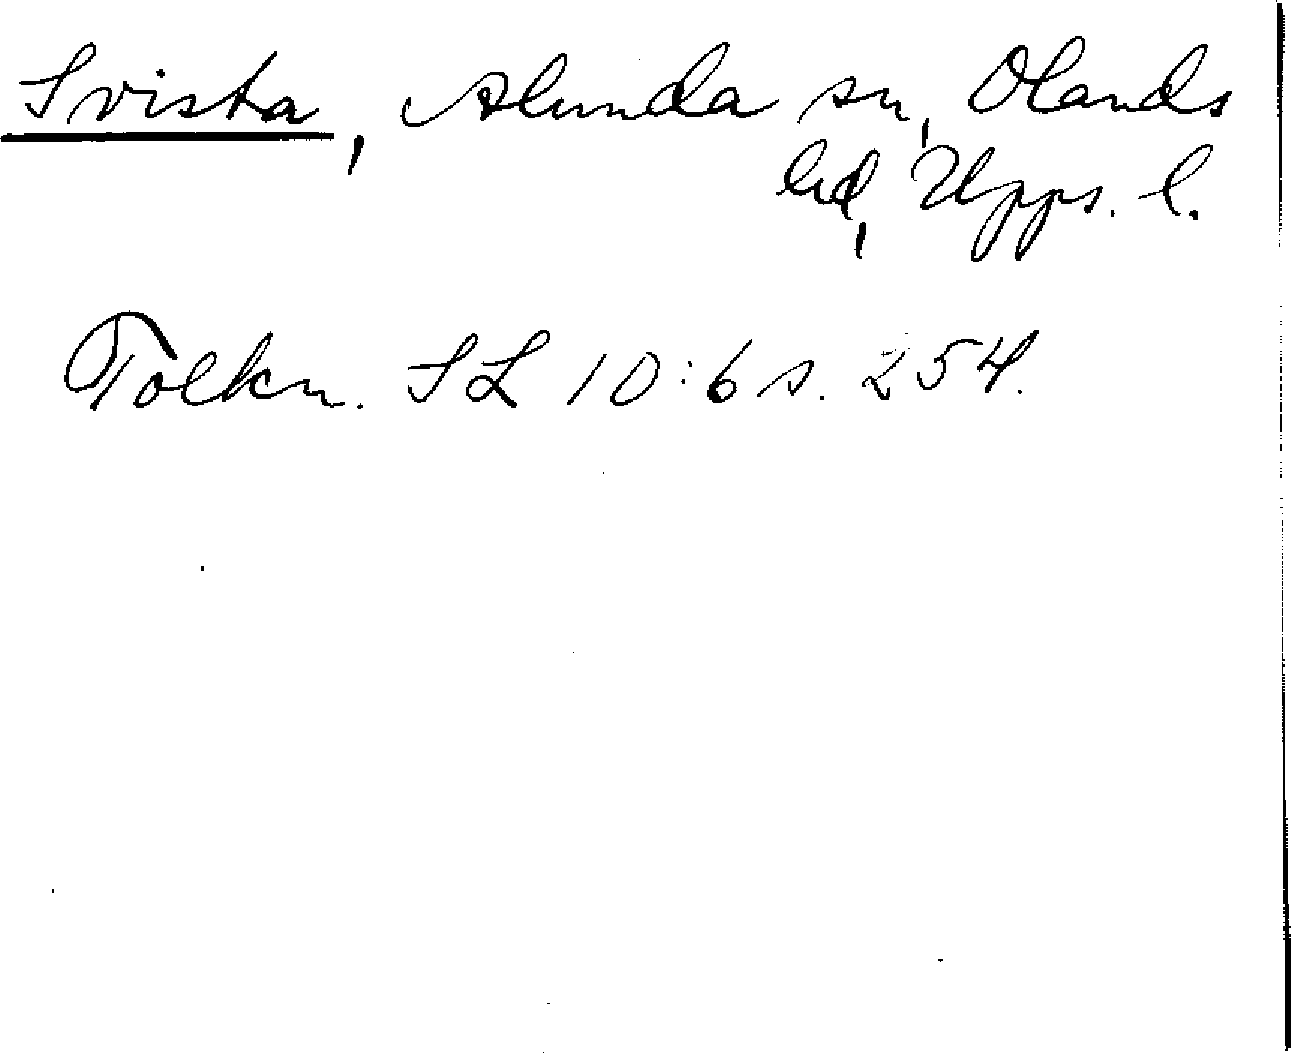 Svista, Alunda sn, Olands
hd, Upps. l.
Tolkn. SL 10:6 s. 254.